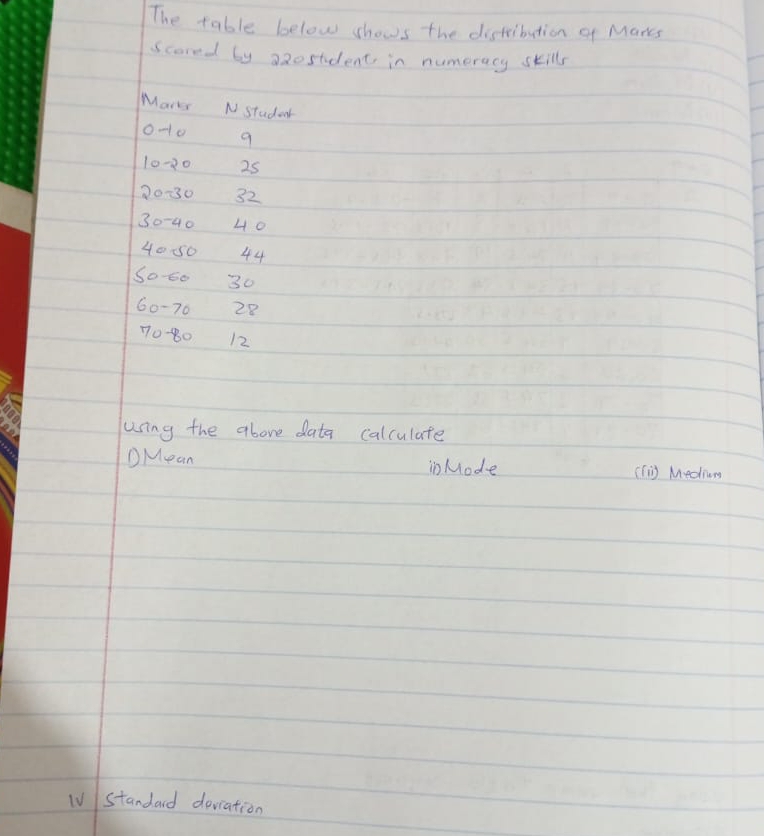 The table below shows the distribution of Marks
scored by 220 students in numeracy skills
Marks N Student
0-10 9
10-20 25
20-30 32
30-40 40
40-50 44
50-60 30
60-70 28
70-80 12
using the above data calculate
i) Mean ii) Mode (iii) Medium
IV Standard deviation